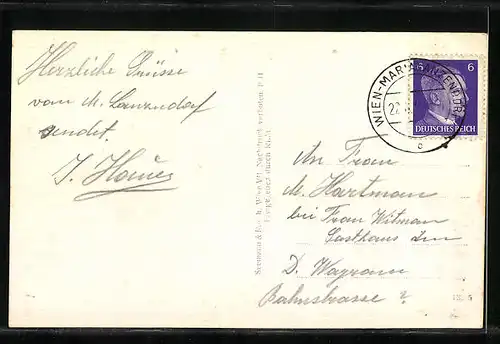 Herzliche Grüsse
vom M. Lanzendorf
sendet.
WIEN-MARIA LANZENDORF
22
c
6
DEUTSCHES REICH
An Frau
M. Hartman
bei Frau Witman
Gasthaus
D. Wagram
Bahnstrasse 2
Wien VII. Nachdruck verboten.